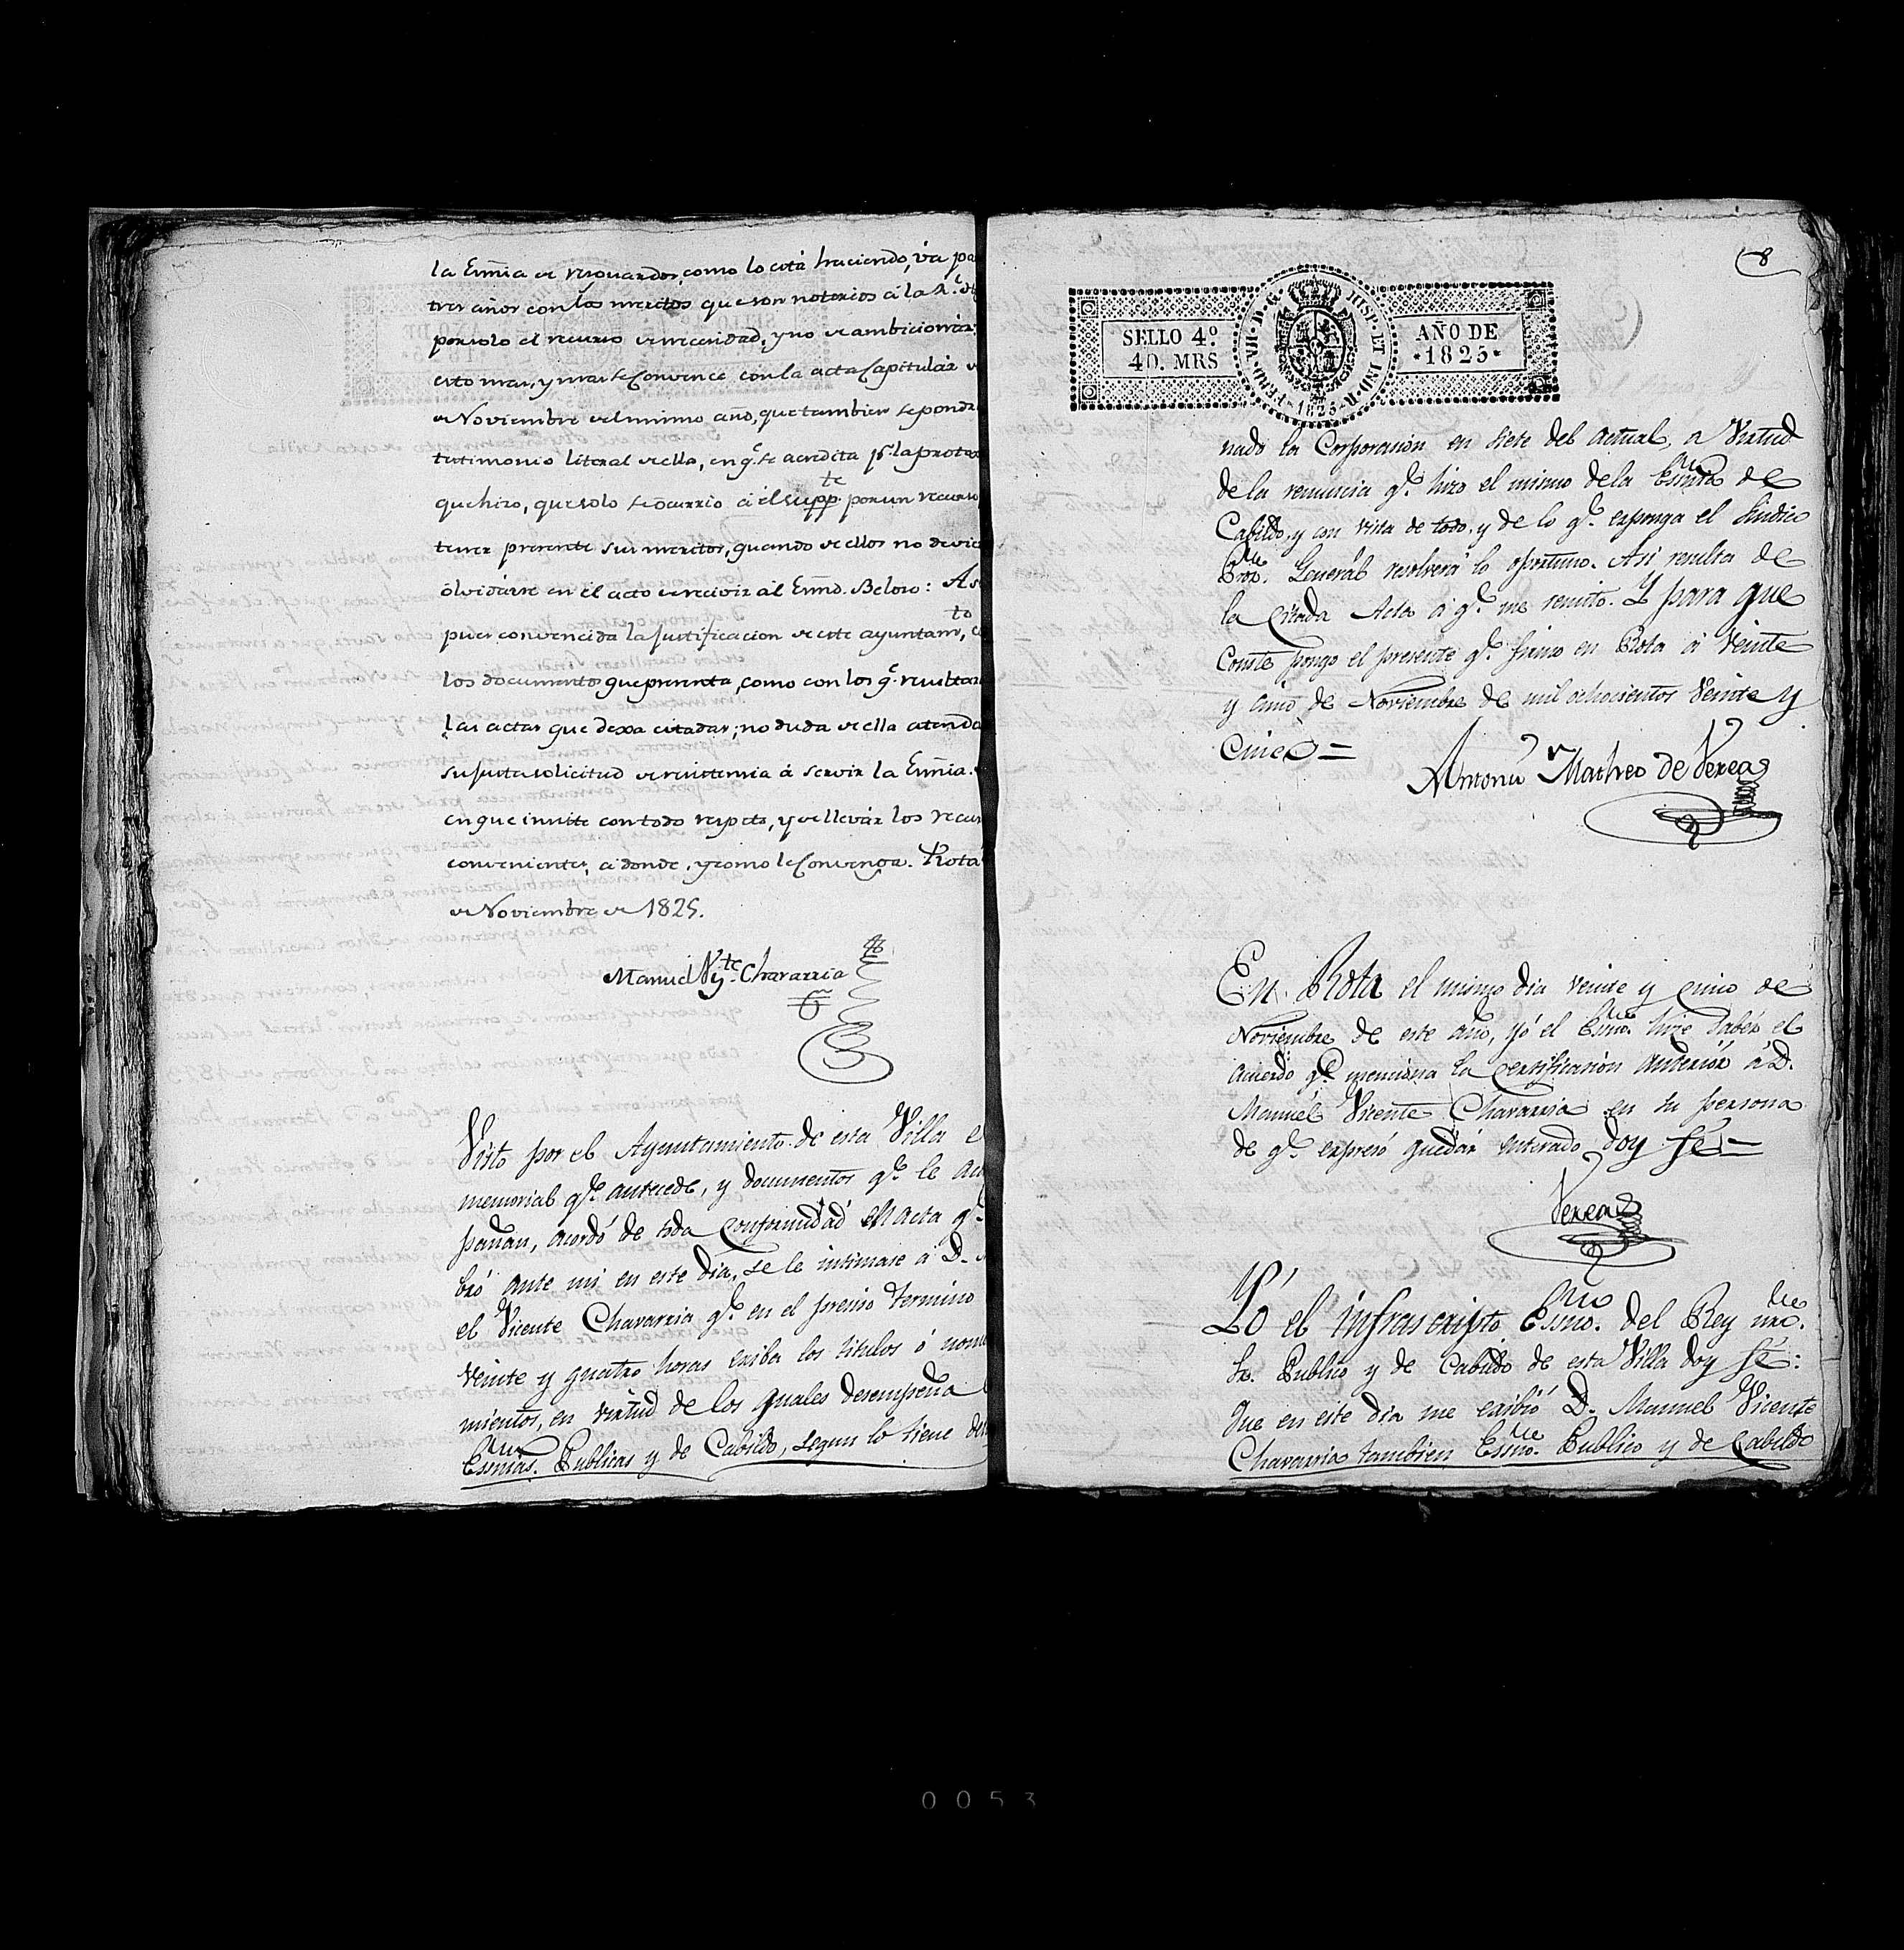 la Esnía de resguardos, como lo está haciendo, va pa
tres años con los meritos que son notorios a la R.
por solo el recurso de necesidad, y no de ambicionar
esto mas, y mas se Convence con la acta Capitular
de Noviembre del mismo año, que tambien se pondr
testimonio literal de ella, en q.e se acredita p.r la protex
que hizo, que solo se ocurrio á el supp.te por un recurso
tener presente sus meritos, quando de ellos no devie
olvidarse en el acto de recivir al Esno. Beloso: As
pues convencida la justificacion de este ayuntam.to, c
los documentos que presenta, como con los q.e resultan
las actas que dexa citadas; no duda de ella atenda
su justa solicitud de resistencia á servir la Esnía.
en que insiste con todo respeto, y de llevar los recur
convenientes, a donde, y como le Convenga. Rota
de Noviembre de 1825.
Manuel V.te Chavarria
Visto por el Ayuntamiento de esta Villa e
memorial q.e antecede, y documentos q.e le acom
pañan, acordó de toda conformidad en acta q.e
bró ante mi en este dia, se le intimase a D.
el Vicente Chavarria q.e en el preciso termino
veinte y quatro horas exiba los titulos ó nom
mientos, en virtud de los quales desempeña
Esnias. Publicas y de Cabildo, segun lo tiene
8
SELLO 4º
40. MRS
FERND. VII. D. G. HISP. ET IND. R.
1825
AÑO DE
1825
nado la Corporacion en siete del actual, a Virtud
de la renuncia q.e hizo el mismo de la Esnia de
Cabildo, y con vista de todo, y de lo q.e exponga el Sindico
Pror. General resolverá lo oportuno. Asi resulta de
la citada Acta á q.e me remito. Y para que
Conste pongo el presente q.e firmo en Rota á Veinte
y cinco de Noviembre de mil ochocientos Veinte y
Cinco =
Antonio Matheo de Verea
En Rota el mismo dia veinte y cinco de
Noviembre de este año, yó el Esno. hize saber el
acuerdo q.e menciona la certificacion anterior á D.
Manuel Vicente Chavarria en su persona
de q.e expresó quedar enterado doy fé =
Verea
Yó el infrascripto Esno. del Rey nro.
Sr. Publico y de Cabildo de esta Villa doy fé:
Que en este dia me exibió D. Manuel Vicente
Chavarria tambien Esno. Publico y de Cabildo
0053